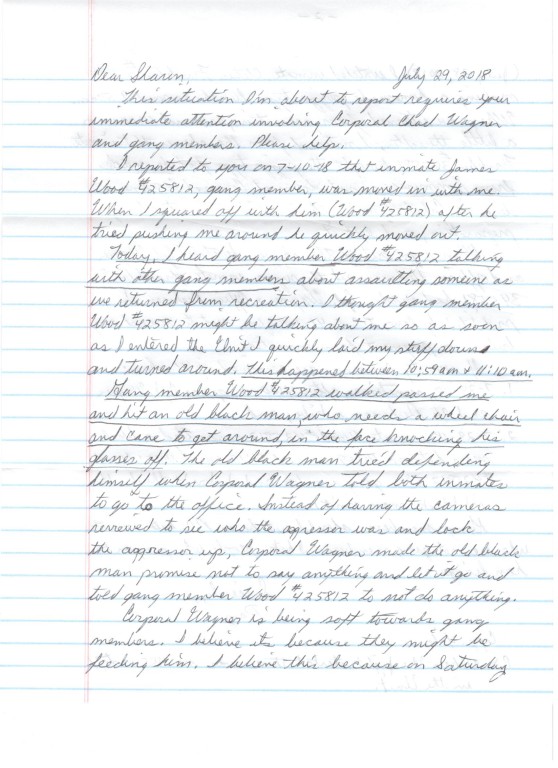 Dear Sharon, July 29, 2018
This situation I'm about to report requires your
immediate attention involving Corporal Chad Wagner
and gang members. Please help.
I reported to you on 7-10-18 that inmate James
Wood #425812, gang member, was moved in with me.
When I squared off with him (Wood #425812) after he
tried pushing me around he quickly moved out.
Today, I heard gang member Wood #425812 talking
with other gang members about assaulting someone as
we returned from recreation. I thought gang member
Wood #425812 might be talking about me so as soon
as I entered the Unit I quickly laid my stuff down
and turned around. This happened between 10:59am & 11:10am.
Gang member Wood #425812 walked passed me
and hit an old black man, who needs a wheel chair
and cane to get around, in the face knocking his
glasses off. The old black man tried defending
himself when Corporal Wagner told both inmates
to go to the office. Instead of having the cameras
reviewed to see who the agressor was and lock
the aggressor up, Corporal Wagner made the old black
man promise not to say anything and let it go and
told gang member Wood #425812 to not do anything.
Corporal Wagner is being soft towards gang
members. I believe its because they might be
feeding him. I believe this because on Saturday